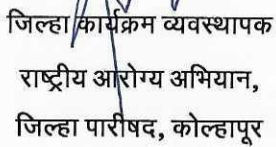 जिल्हा कार्यक्रम व्यवस्थापक
राष्ट्रीय आरोग्य अभियान,
जिल्हा पारीषद, कोल्हापूर